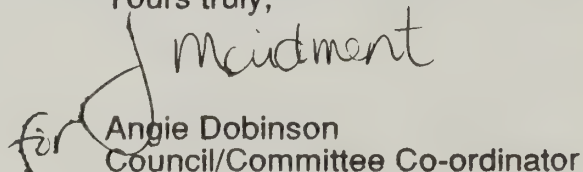 Yours truly,
Maidment
for Angie Dobinson
Council/Committee Co-ordinator